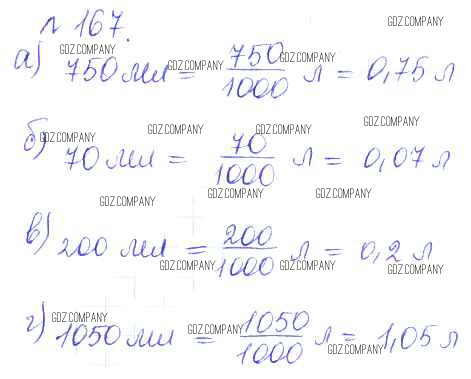 N 167.
GDZ.COMPANY
а) 750 мл = 750/1000 л = 0,75 л
GDZ.COMPANY GDZ.COMPANY GDZ.COMPANY
GDZ.COMPANY GDZ.COMPANY GDZ.COMPANY
б) 70 мл = 70/1000 л = 0,07 л
GDZ.COMPANY
GDZ.COMPANY GDZ.COMPANY GDZ.COMPANY
в) 200 мл = 200/1000 л = 0,2 л
GDZ.COMPANY GDZ.COMPANY GDZ.COMPANY
г) 1050 мл = 1050/1000 л = 1,05 л
GDZ.COMPANY GDZ.COMPANY GDZ.COMPANY